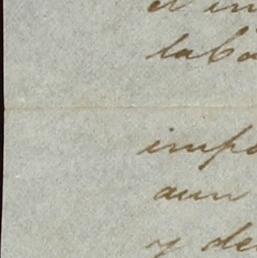 el in
labo
impo
aun
y de